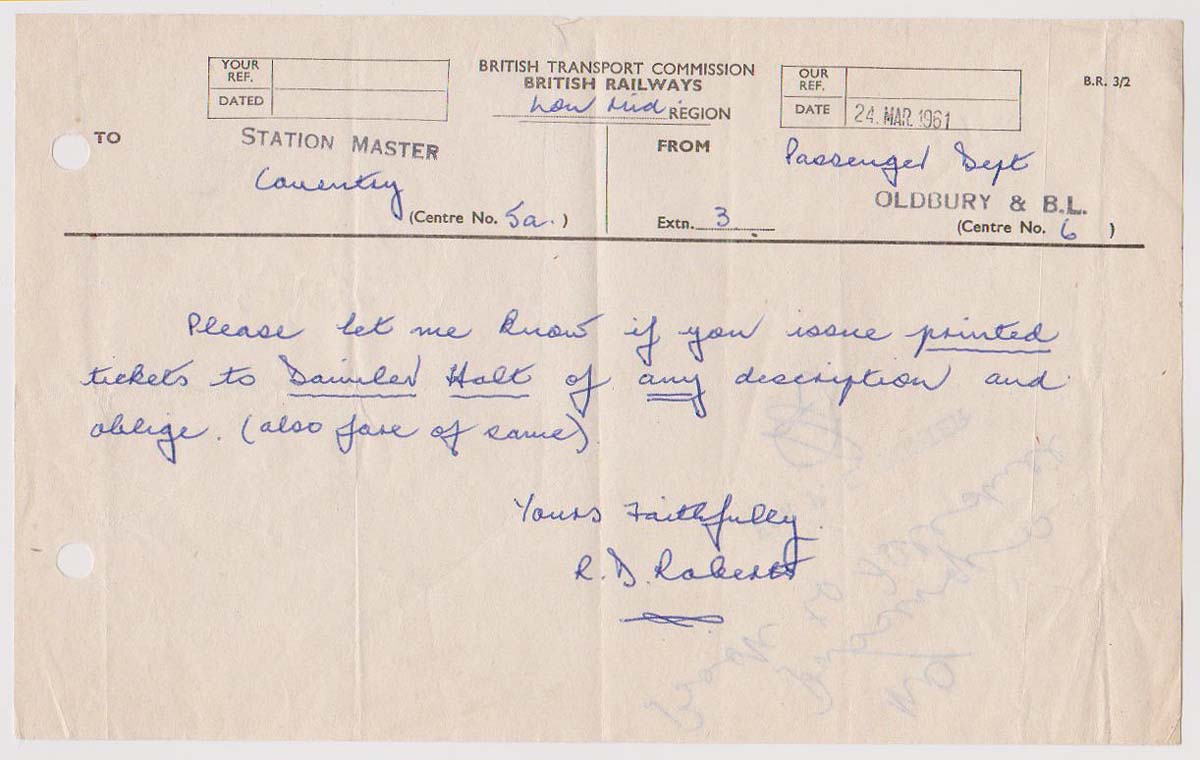 YOUR REF.
DATED
BRITISH TRANSPORT COMMISSION
BRITISH RAILWAYS
Lon Mid REGION
OUR REF.
DATE 24. MAR. 1961
B.R. 3/2
TO STATION MASTER
Coventry
(Centre No. 5a.)
FROM Passenger Dept
OLDBURY & B.L.
Extn. 3
(Centre No. 6)
Please let me know if you issue printed
tickets to Daimler Halt of any description and
oblige. (also fare of same)
Yours Faithfully.
R. D. Roberts